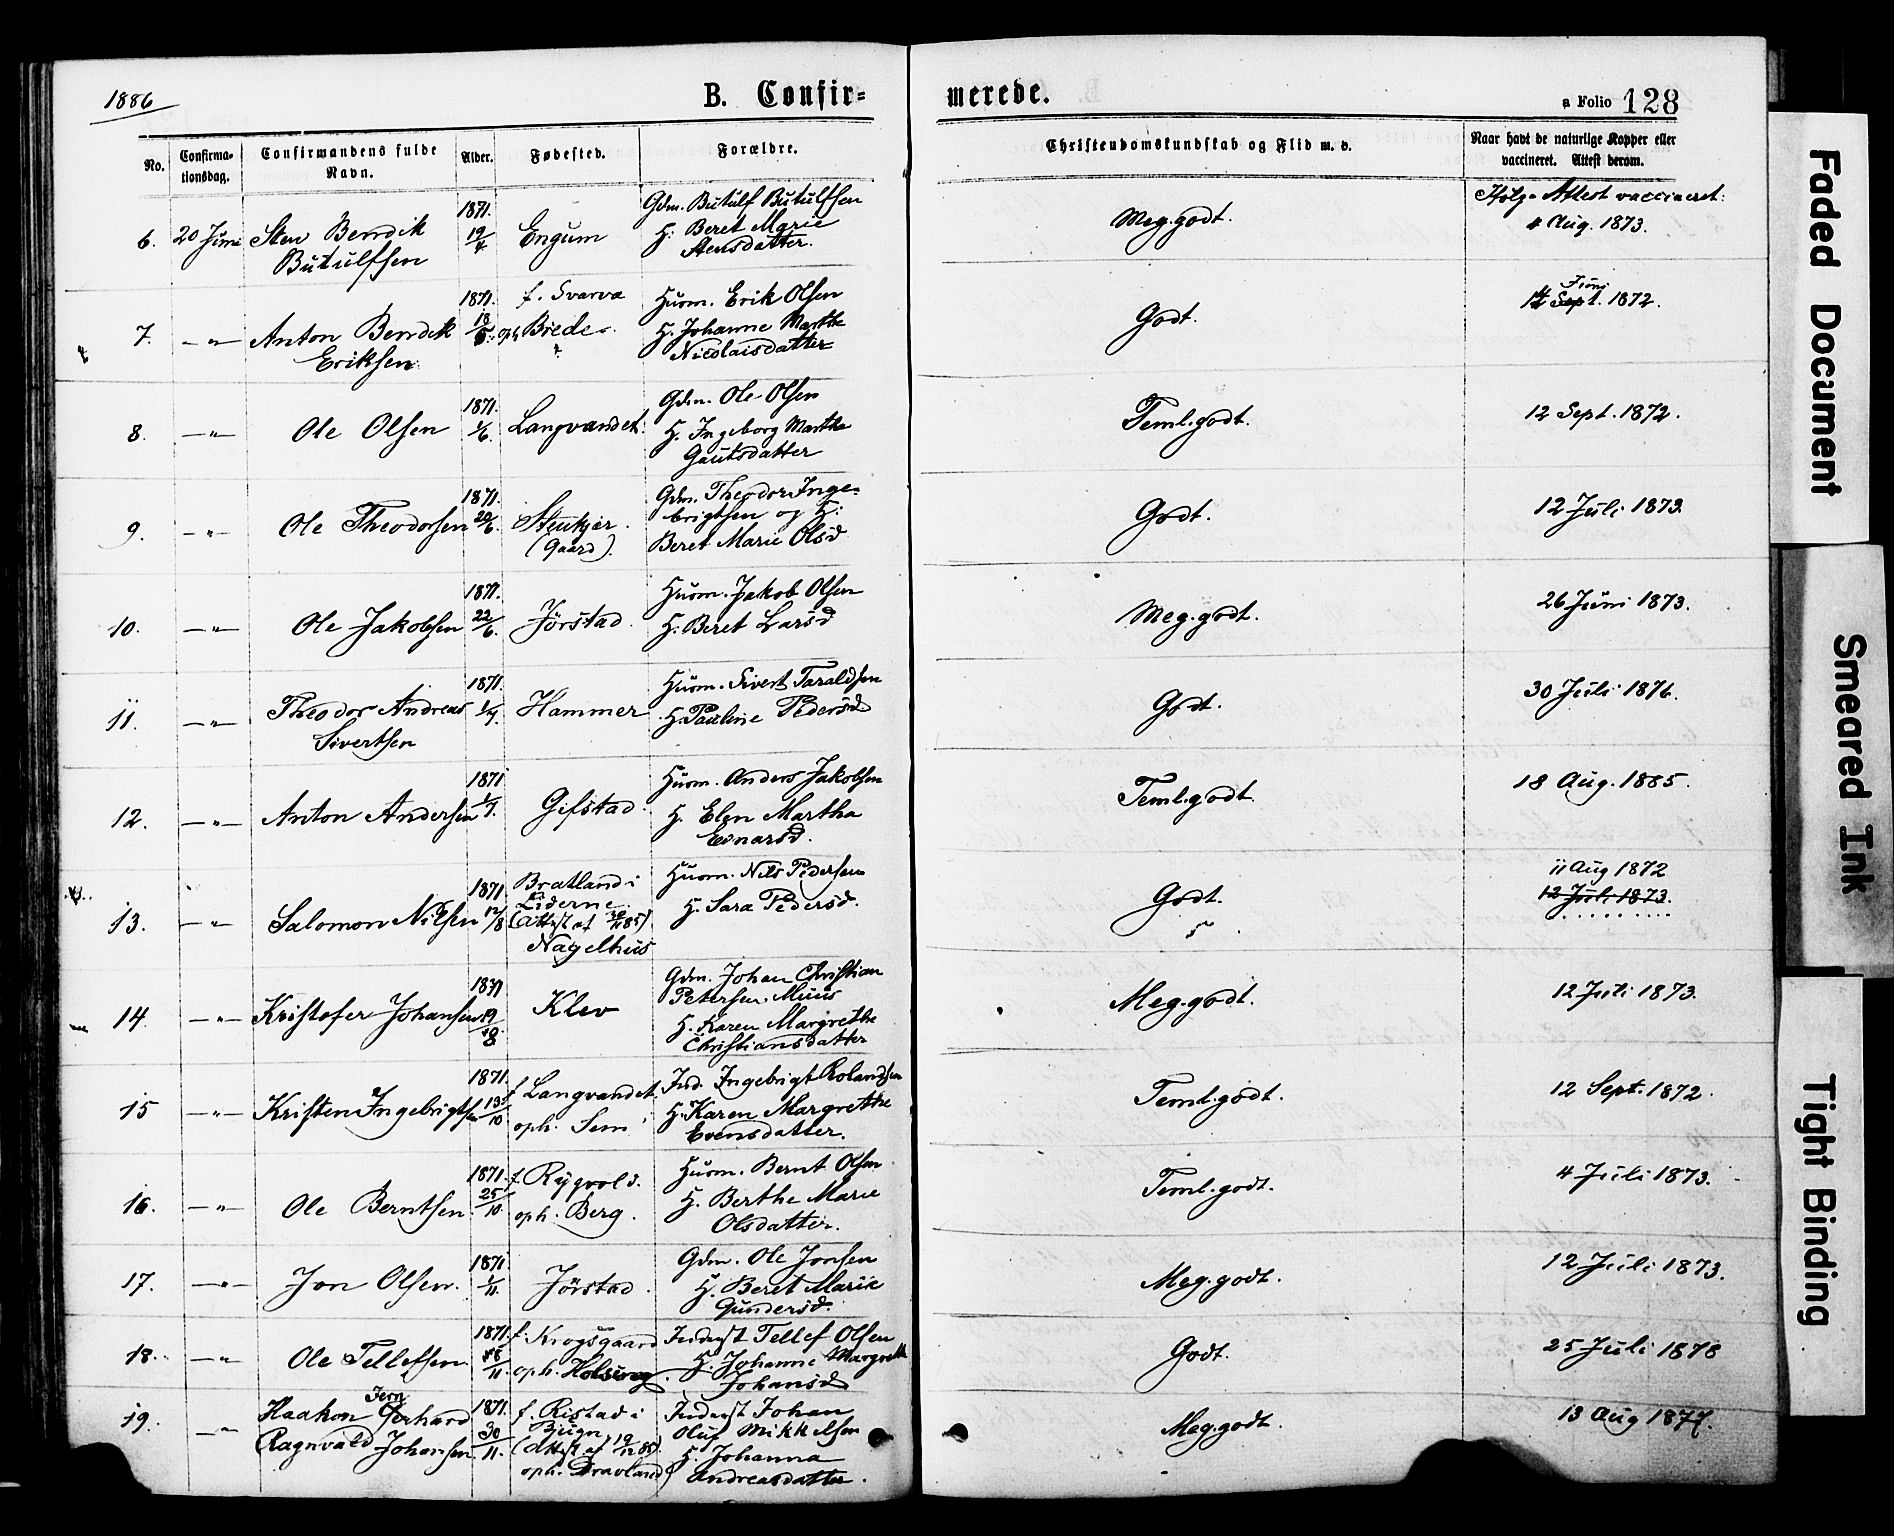 1886
B. Confirmerede.
a Folio 128
No.
Confirmationsdag.
Confirmandens fulde Navn.
Alder.
Fødested.
Forældre.
Christendomskundskab og Flid m. v.
Naar havt de naturlige Kopper eller vaccineret. Attest derom.
6. 20 Juni Sten Bendik Butulfsen 1871. 19/4 Engum
Gdm. Butulf Butulfsen
H. Beret Marie
Stensdatter.
Meg. godt.
Ifølge Attest vaccineret:
4 Aug. 1873.
7. —„— Anton Bendik Eriksen 1871. 18/5 f. Svarva
oph. Brede
Husm. Erik Olsen
H. Johanne Marthe
Nicolaisdatter
Godt.
Juni
Sept. 1872.
8. —„— Ole Olsen 1871. 1/6. Langvandet.
Gdm. Ole Olsen
H. Ingeborg Martha
Gautsdatter
Teml. godt.
12 Sept. 1872.
9. —„— Ole Theodorsen 1871. 20/6. Stenkjær
(Gaard).
Gdm. Theodor Inge-
brigtsen og H:
Beret Marie Olsd
Godt.
12 Juli 1873.
10. —„— Ole Jakobsen 1871. 22/6. Jørstad.
Husm. Jakob Olsen
H. Beret Larsd
Meg. godt.
26 Juni 1873.
11. —„— Theodor Andreas Sivertsen 1871. Hammer
Husm. Sivert Taraldsen
H. Pauline Pedersd
Godt.
30 Juli 1876.
12. —„— Anton Andersen 1871 Gifstad.
Husm. Anders Jakobsen
H. Elen Martha
Einarsd.
Teml. godt.
18 Aug. 1885.
13. —„— Salomon Nilsen 1871 12/8 Bratland i
Lierne
(Attest af
Nagelhus
Husm. Nils Pedersen
H. Sara Pedersd.
Godt.
11 Aug 1872
12 Juli 1873.
14. —„— Kristofer Johansen 1871 Klev
Gdm. Johan Christian
Petersen Muus
H. Karen Margrethe
Christiansdatter
Meg. godt.
12 Juli 1873.
15 —„— Kristen Ingebrigtsen 1871. 13/10 f. Langvandet
oph. Sem
Ind. Ingebrigt Rolandsen
H. Karen Margrethe
Evensdatter.
Teml. godt.
12 Sept. 1872.
16. —„— Ole Berntsen 1871. 25/10. f. Rygvold.
oph. Berg.
Husm. Bernt Olsen
H. Berthe Marie
Olsdatter.
Teml. godt.
4 Juli 1873.
17. —„— Jon Olsen. 1871. 1/11. Jørstad.
Gdm. Ole Jonsen
H. Beret Marie
Gundersd.
Meg. godt.
12 Juli 1873.
18. —„— Ole Tellefsen 1871. f. Krogsgaard
oph.
Inderst Tellef Olsen
H. Johanne Margreth
Johansd
Godt.
25 Juli 1878
19. —„— Haakon Jern Gerhard
Ragnvald Johansen 1871. 30/11. f. Ristad i
Bjugn
(Attest af 19/12 85).
oph.
Inderst Johan
Oluf Mikkelsen
H. Johanna
Andreasdatter.
Meg. godt.
13 Aug 1877.
Faded Document
Smeared Ink
Tight Binding